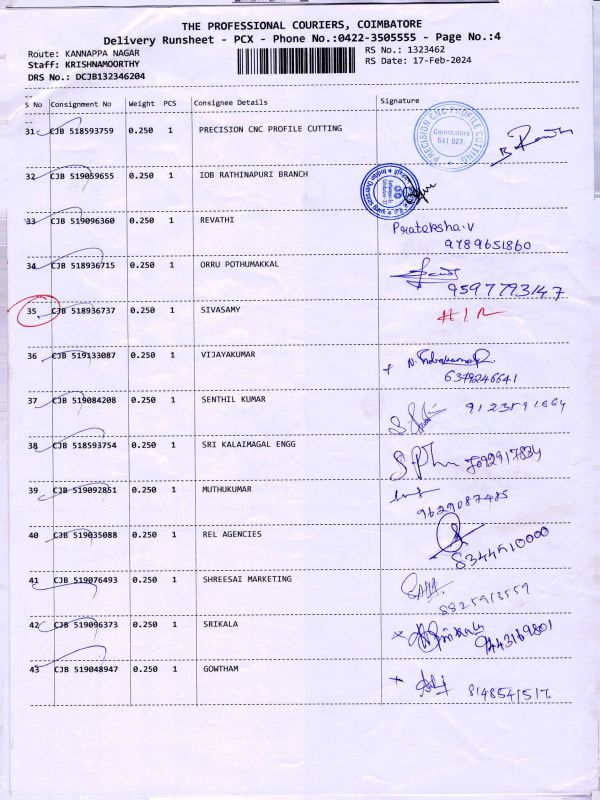 THE PROFESSIONAL COURIERS, COIMBATORE
Delivery Runsheet - PCX - Phone No.:0422-3505555 - Page No.:4
Route: KANNAPPA NAGAR RS No.: 1323462
Staff: KRISHNAMOORTHY RS Date: 17-Feb-2024
DRS No.: DCJB132346204
S No Consignment No Weight PCS Consignee Details Signature
31 CJB 518593759 0.250 1 PRECISION CNC PROFILE CUTTING
PRECISION CNC PROFILE CUTTING
Coimbatore
641 027.
32 CJB 519059655 0.250 1 IOB RATHINAPURI BRANCH
33 CJB 519096360 0.250 1 REVATHI Prateksha.V
9789651860
34 CJB 518936715 0.250 1 ORRU POTHUMAKKAL
9597793147
35 CJB 518936737 0.250 1 SIVASAMY
36 CJB 519133087 0.250 1 VIJAYAKUMAR
6379246641
37 CJB 519084208 0.250 1 SENTHIL KUMAR
38 CJB 518593754 0.250 1 SRI KALAIMAGAL ENGG 7092917834
39 CJB 519092851 0.250 1 MUTHUKUMAR
9629087485
40 CJB 519035088 0.250 1 REL AGENCIES
8344510000
41 CJB 519076493 0.250 1 SHREESAI MARKETING
8825913559
42 CJB 519096373 0.250 1 SRIKALA
43 CJB 519048947 0.250 1 GOWTHAM 8148541517.